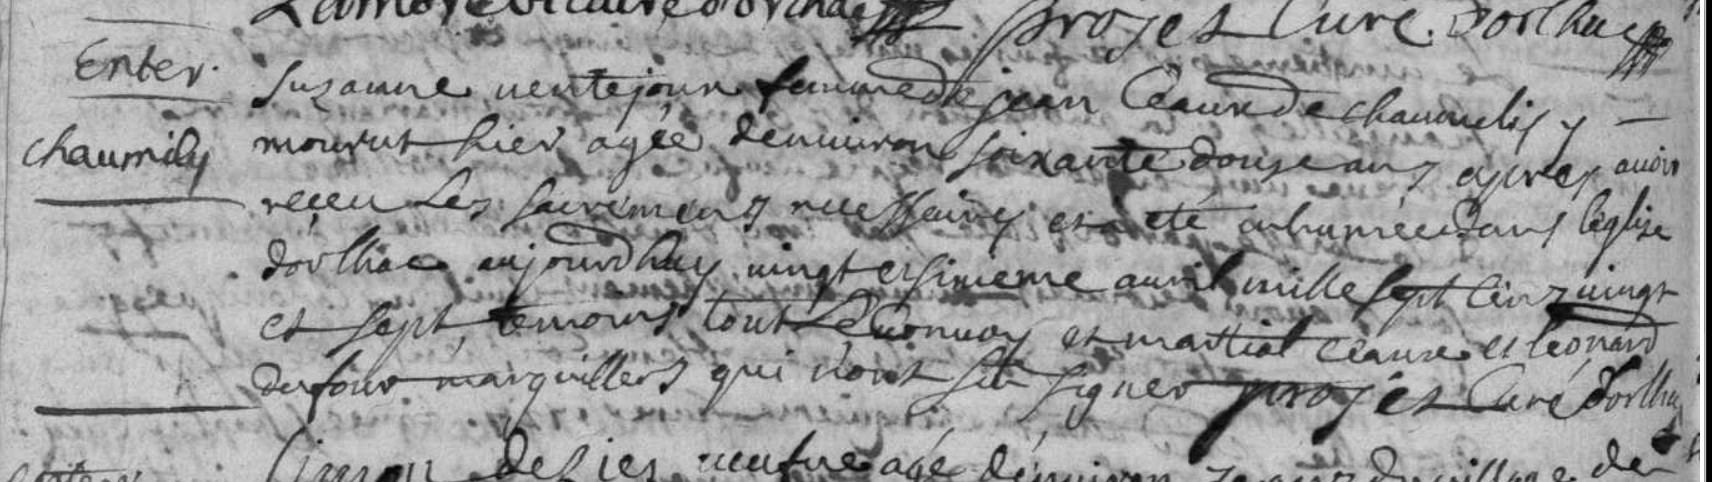 projet Curé dorlhac
Enter.
Suzanne ventejoux femme de jean Ceaux de chaumilis y
chaumily
mourut hier agée denuiron soixante douze ans apres auoir
reçeu Les sacremens necessaires et a eté inhumée dans léglise
dorlhac aujourdhuy uingt et sixieme auril mille sept cens uingt
et sept, temoins tout Le Conuoy et martial ceaux et léonard
dufour marguilliers qui n'ont sceu signer projet Curé dorlhac
agé denuiron du uillage de